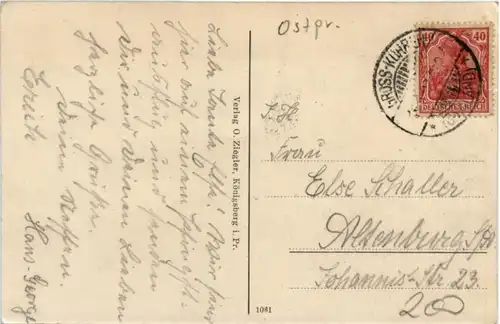 Ostpr.
Liebe Tante Else! Wir sind
hier auf einem Pfingst-
ausflug und senden
Dir und Deinen Lieben
herzliche Grüße.
Deine Neffen.
Hans-George
Verlag O. Ziegler, Königsberg i. Pr.
1061
GROSS-KUHREN
40
DEUTSCHES REICH
Frau
Else Schaller
Altenburg
Johannis-Str 23.
200